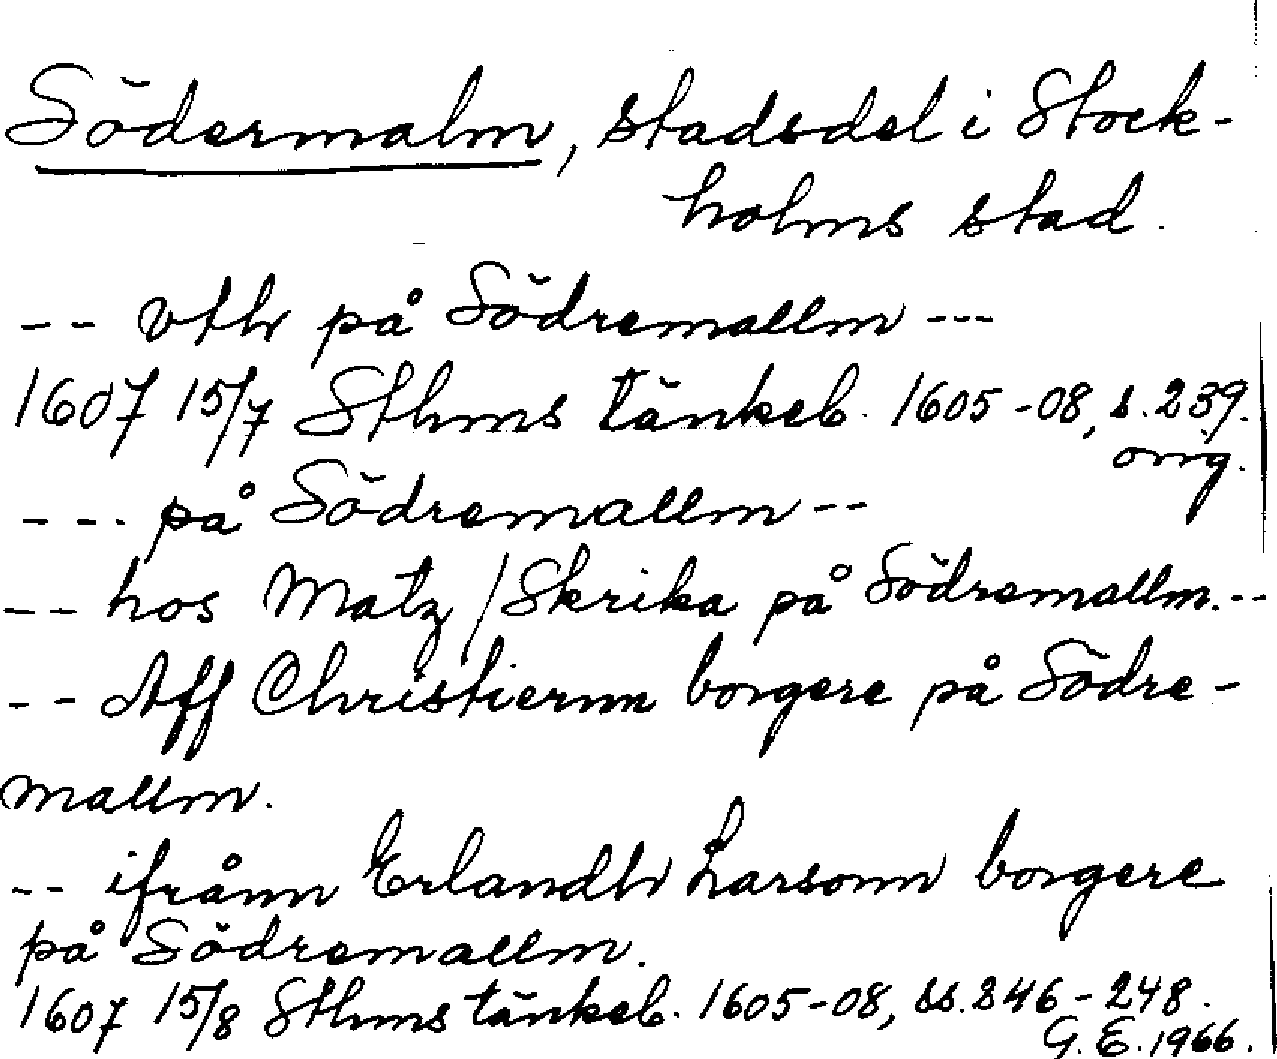 Södermalm, stadsdel i Stock-
holms stad.
-- vthr på Södremallm ---
1607 15/7 Sthms tänkeb. 1605-08, s. 239.
orig.
--- på Södremallm --
-- hos Matz / Skrika på Södremallm. --
-- Aff Christiernn borgere på Södre-
mallm.
-- ifrånn Erlandh Larsonn borgere
på Södremallm.
1607 15/8 Sthms tänkeb. 1605-08, ss. 246-248.
G. E. 1966.